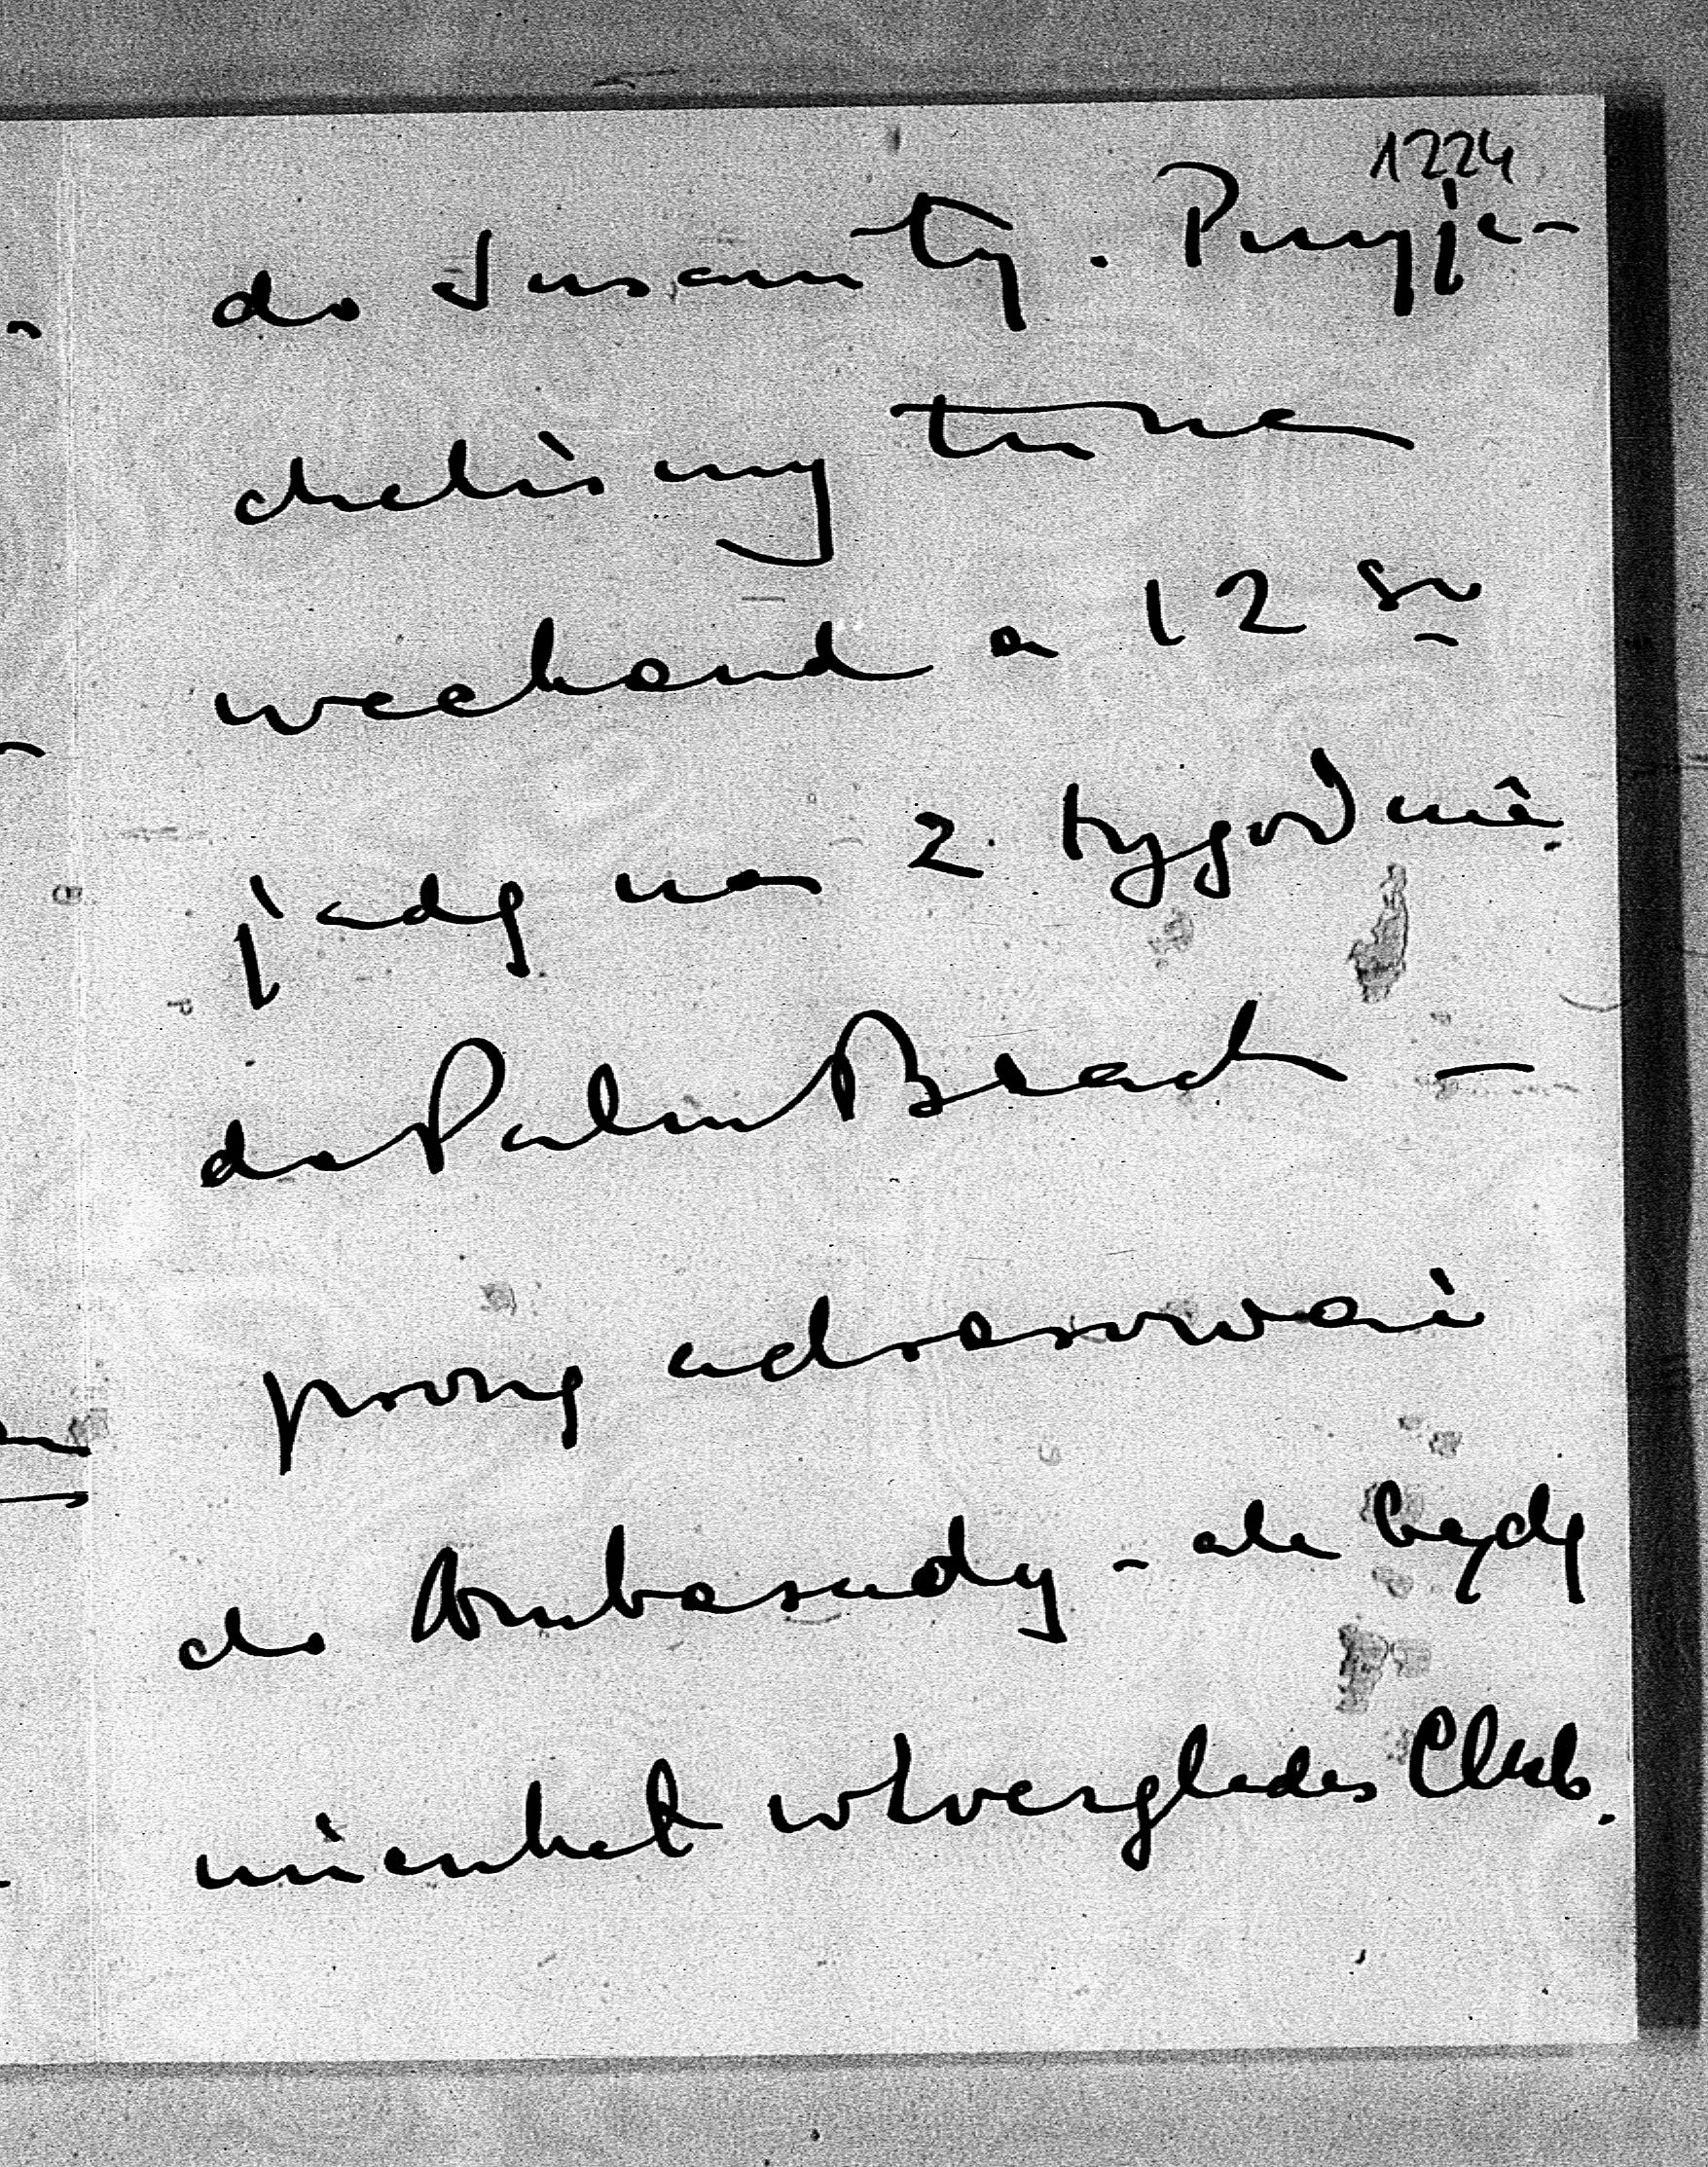 1224
do Susanty. Przyje-
chaliśmy tu na
weekend a 12 go
jadę na 2 tygodnie
do Palm Beach —
proszę adresować
do Ambasady - ale będę
mieszkał w Everglades Club.